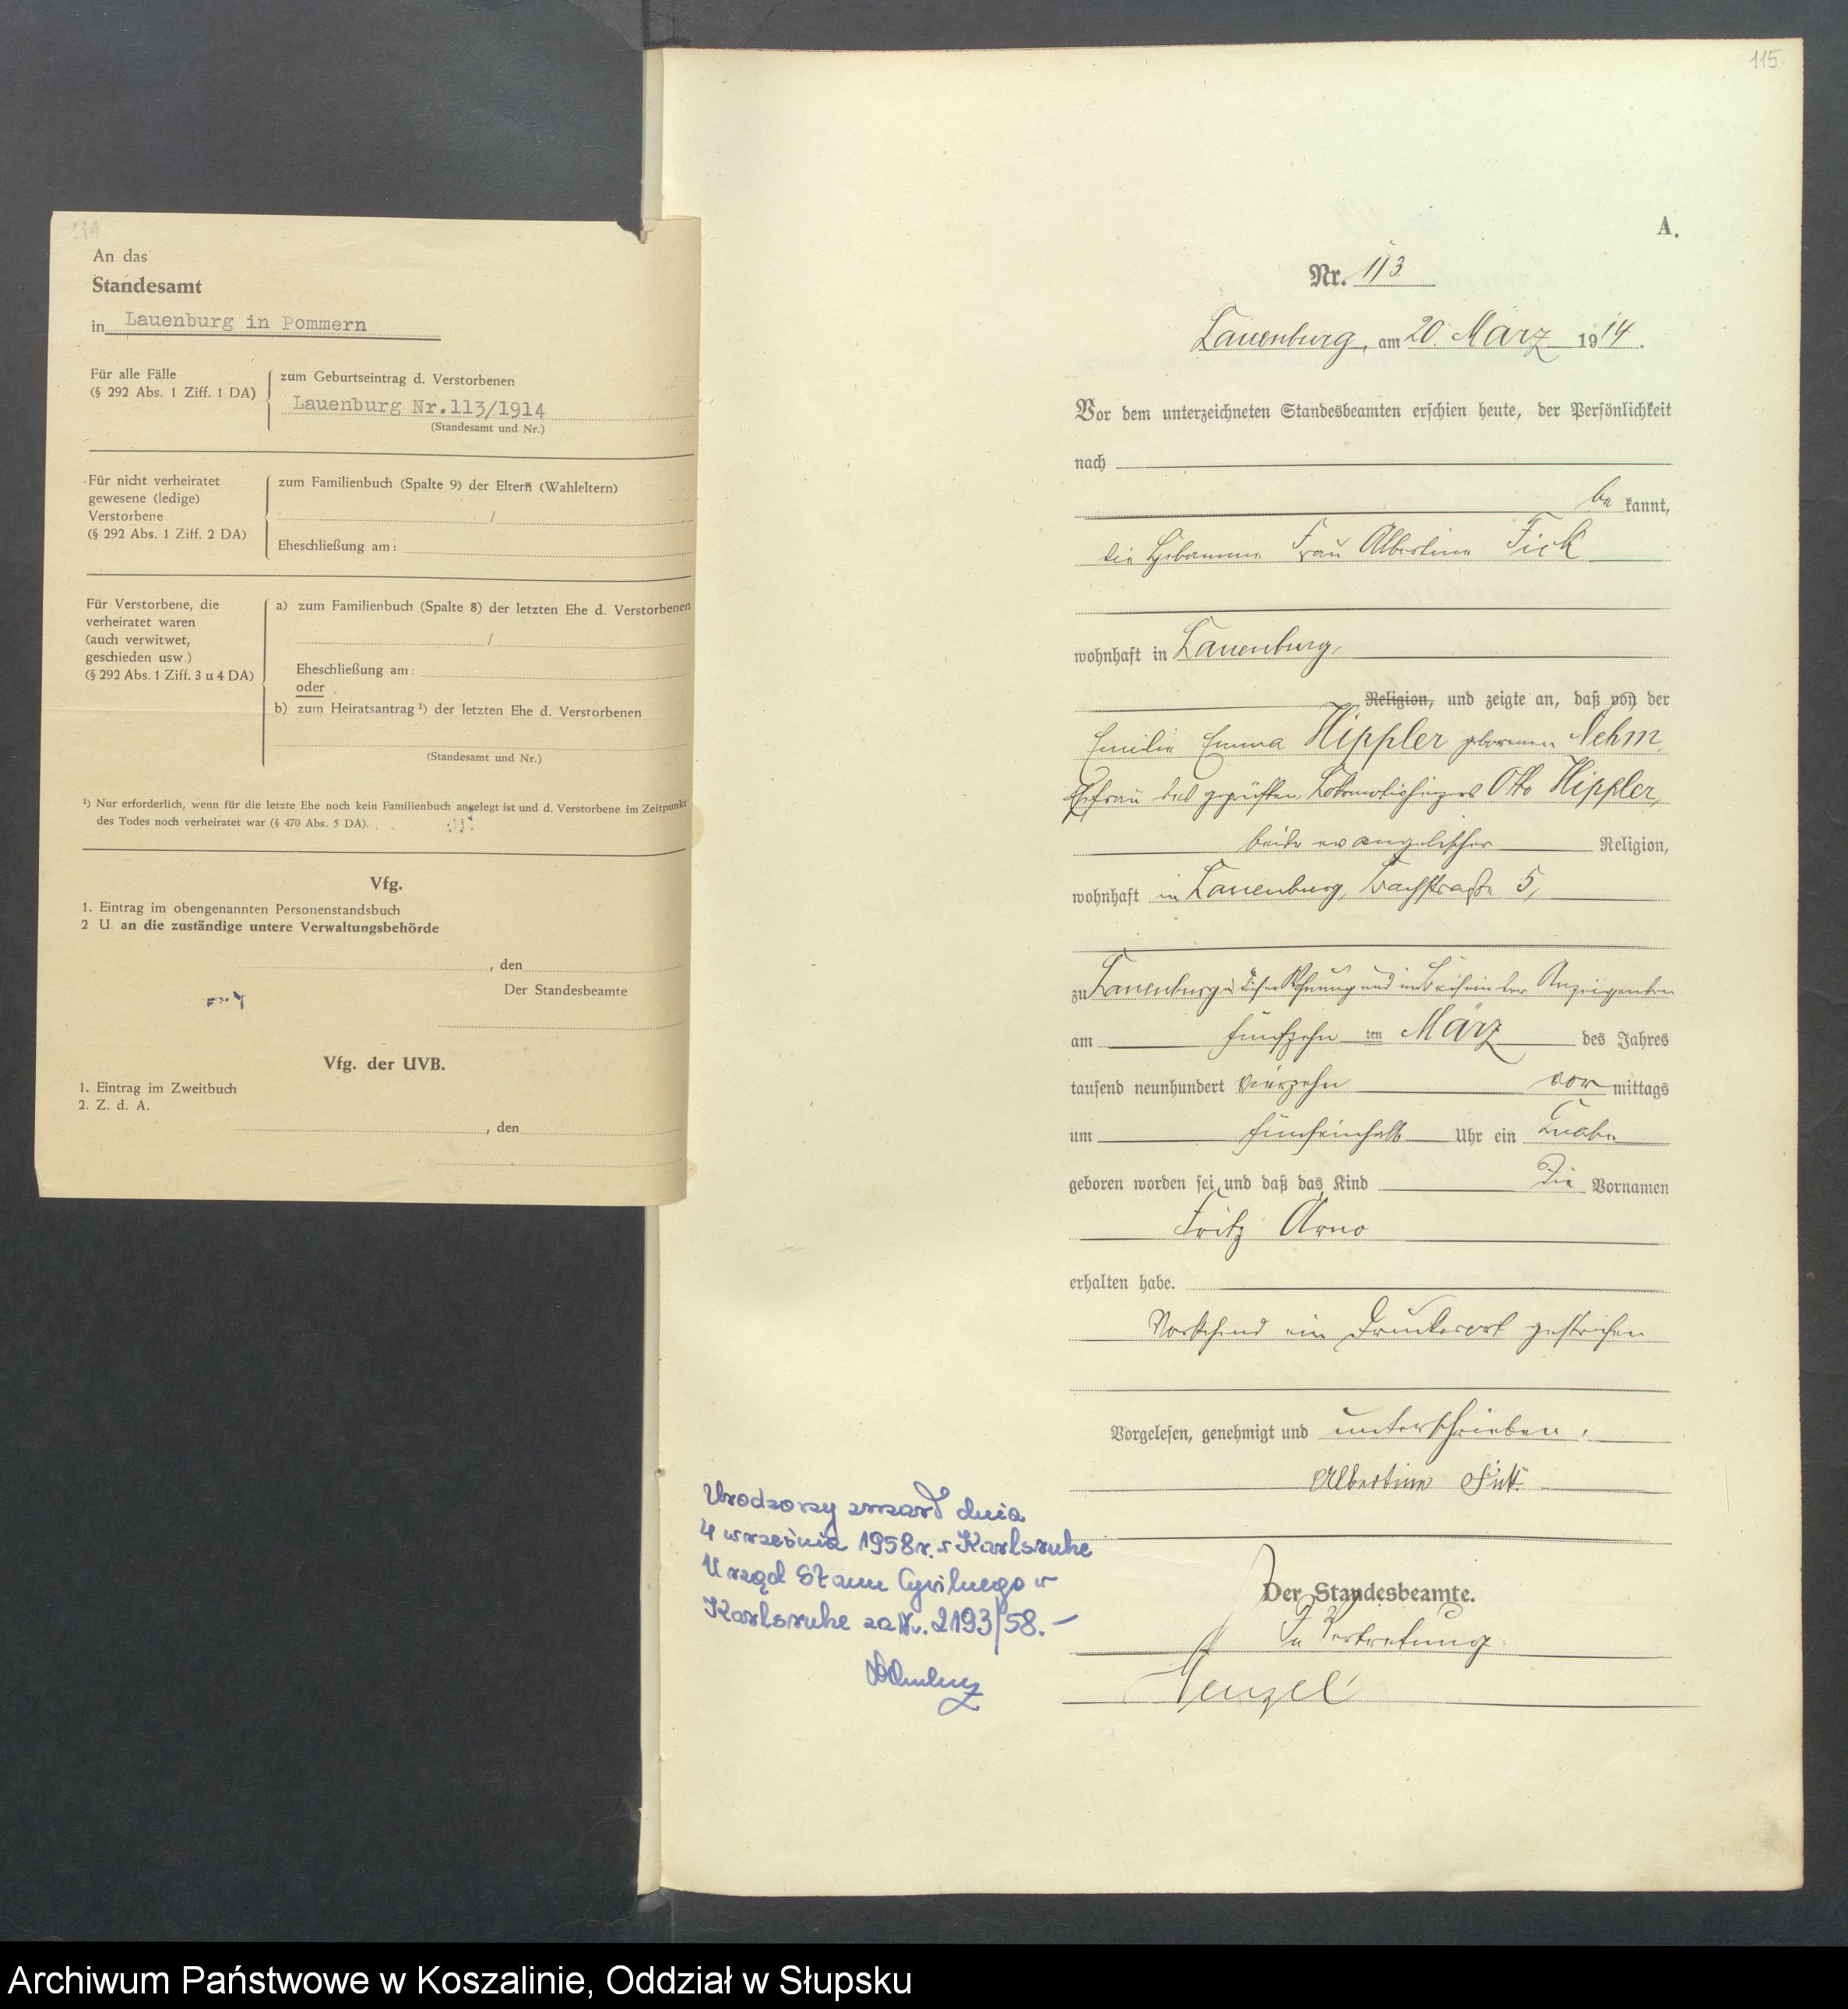 114
An das
Standesamt
in Lauenburg in Pommern
Für alle Fälle
(§ 292 Abs. 1 Ziff. 1 DA)
zum Geburtseintrag d. Verstorbenen
Lauenburg Nr.113/1914
(Standesamt und Nr.)
Für nicht verheiratet
gewesene (ledige)
Verstorbene
(§ 292 Abs. 1 Ziff. 2 DA)
zum Familienbuch (Spalte 9) der Eltern (Wahleltern)
/
Eheschließung am:
Für Verstorbene, die
verheiratet waren
(auch verwitwet,
geschieden usw.)
(§ 292 Abs. 1 Ziff. 3 u 4 DA)
a) zum Familienbuch (Spalte 8) der letzten Ehe d. Verstorbenen
/
Eheschließung am:
oder
b) zum Heiratsantrag ¹) der letzten Ehe d. Verstorbenen
(Standesamt und Nr.)
¹) Nur erforderlich, wenn für die letzte Ehe noch kein Familienbuch angelegt ist und d. Verstorbene im Zeitpunkt
des Todes noch verheiratet war (§ 470 Abs. 5 DA).
Vfg.
1. Eintrag im obengenannten Personenstandsbuch
2 U. an die zuständige untere Verwaltungsbehörde
, den
Der Standesbeamte
Vfg. der UVB.
1. Eintrag im Zweitbuch
2. Z. d. A.
, den
115.
A.
Nr. 113
Lauenburg, am 20. März 1914.
Vor dem unterzeichneten Standesbeamten erschien heute, der Persönlichkeit
nach
be kannt,
die Hebamme Frau Albertine Fick
wohnhaft in Lauenburg,
Religion, und zeigte an, daß von der
Emilie Emma Hippler geborenen Nehm,
Ehefrau des geprüften Lokomotivheizers Otto Hippler,
beide evangelischer Religion,
wohnhaft in Lauenburg, Bachstraße 5,
zu Lauenburg in dieser Wohnung und im Beisein der Anzeigenden
am fünfzehn ten März des Jahres
tausend neunhundert vierzehn vor mittags
um fünfeinhalb Uhr ein Knabe
geboren worden sei und daß das Kind die Vornamen
Fritz Arno
erhalten habe.
Vorstehend ein Druckwort gestrichen
Vorgelesen, genehmigt und unterschrieben.
Albertine Fick.
Der Standesbeamte.
In Vertretung
Menzel
Urodzony zmarł dnia
4 września 1958 r. w Karlsruhe
Urząd Stanu Cywilnego w
Karlsruhe za Nr. 2193/58. –
Archiwum Państwowe w Koszalinie, Oddział w Słupsku